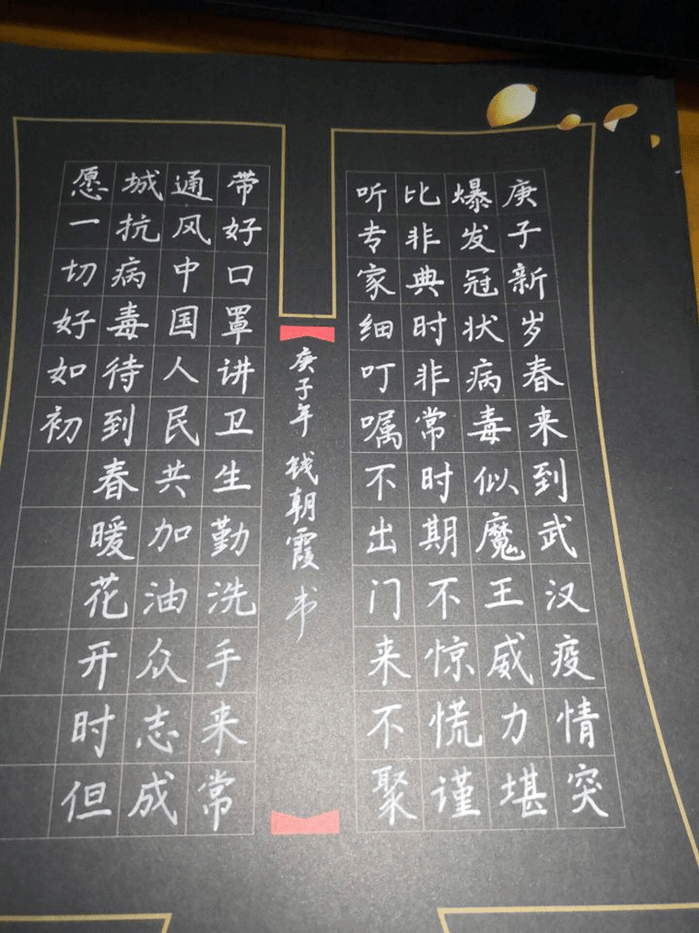 庚子新岁春来到武汉疫情突
爆发冠状病毒似魔王威力堪
比非典时非常时期不惊慌谨
听专家细叮嘱不出门来不聚
庚子年钱朝霞书
带好口罩讲卫生勤洗手来常
通风中国人民共加油众志成
城抗病毒待到春暖花开时但
愿一切好如初